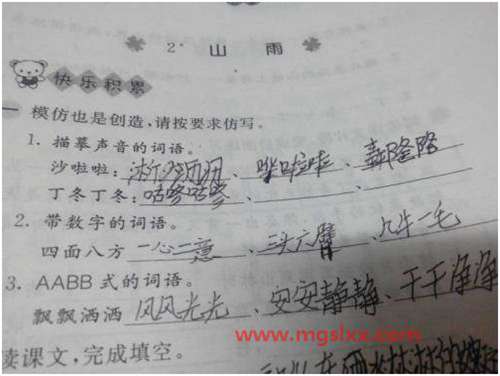 2* 山 雨
快乐积累
一 模仿也是创造,请按要求仿写。
1. 描摹声音的词语。
沙啦啦: 、哗啦啦、轰隆隆
丁冬丁冬:咕咚咕咚、
2. 带数字的词语。
四面八方 一心二意、三头六臂、九牛一毛
3. AABB 式的词语。
飘飘洒洒 风风光光、安安静静、干干净净
www.mgslxx.com
读课文,完成填空。